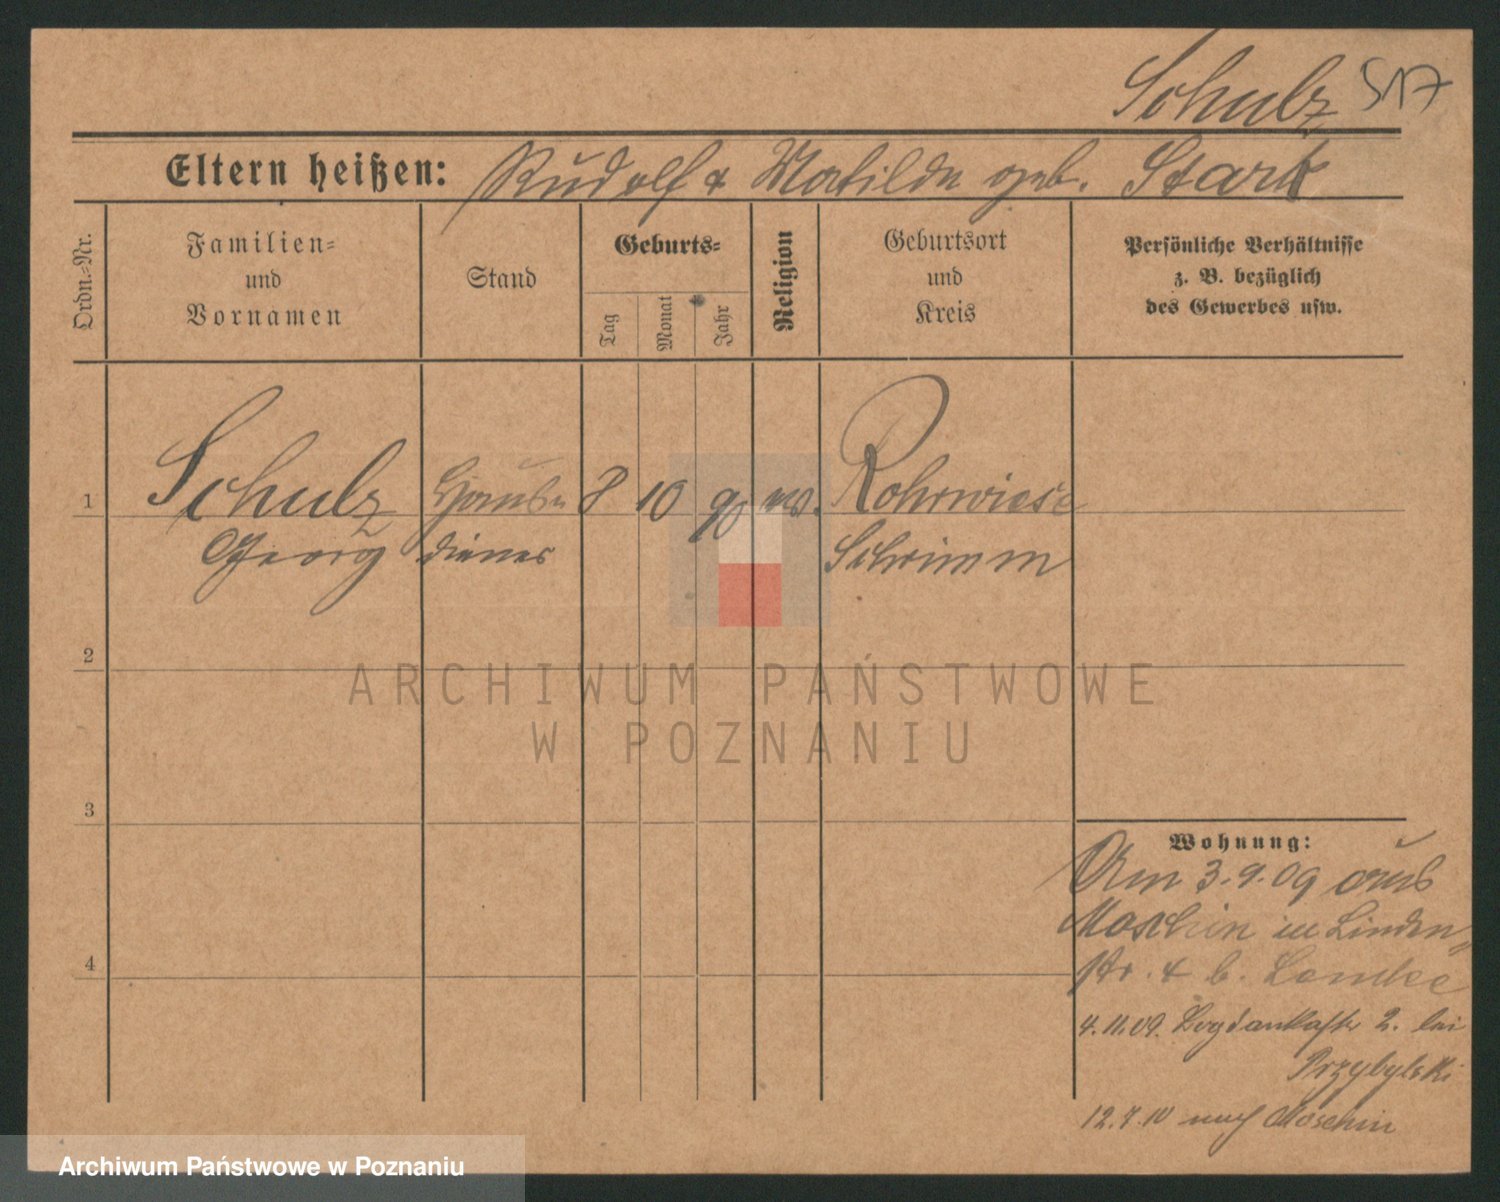 Schulz 517
Eltern heißen: Rudolf & Matilde geb. Stark
Ordn.-Nr.
Familien-
und
Vornamen
Stand
Geburts-
Tag
Monat
Jahr
Religion
Geburtsort
und
Kreis
Persönliche Verhältnisse
z. B. bezüglich
des Gewerbes usw.
1
Schulz Haus- 8 10 90 Rohrwiese
Georg diener Schrimm
2
3
4
Wohnung:
Am 3.9.09 aus
Moschin in Linden-
str. 4 b.
4.11.09. Bogdankastr 2. bei
Przybylski
12.7.10 nach Moschin
ARCHIWUM PAŃSTWOWE
W POZNANIU
Archiwum Państwowe w Poznaniu